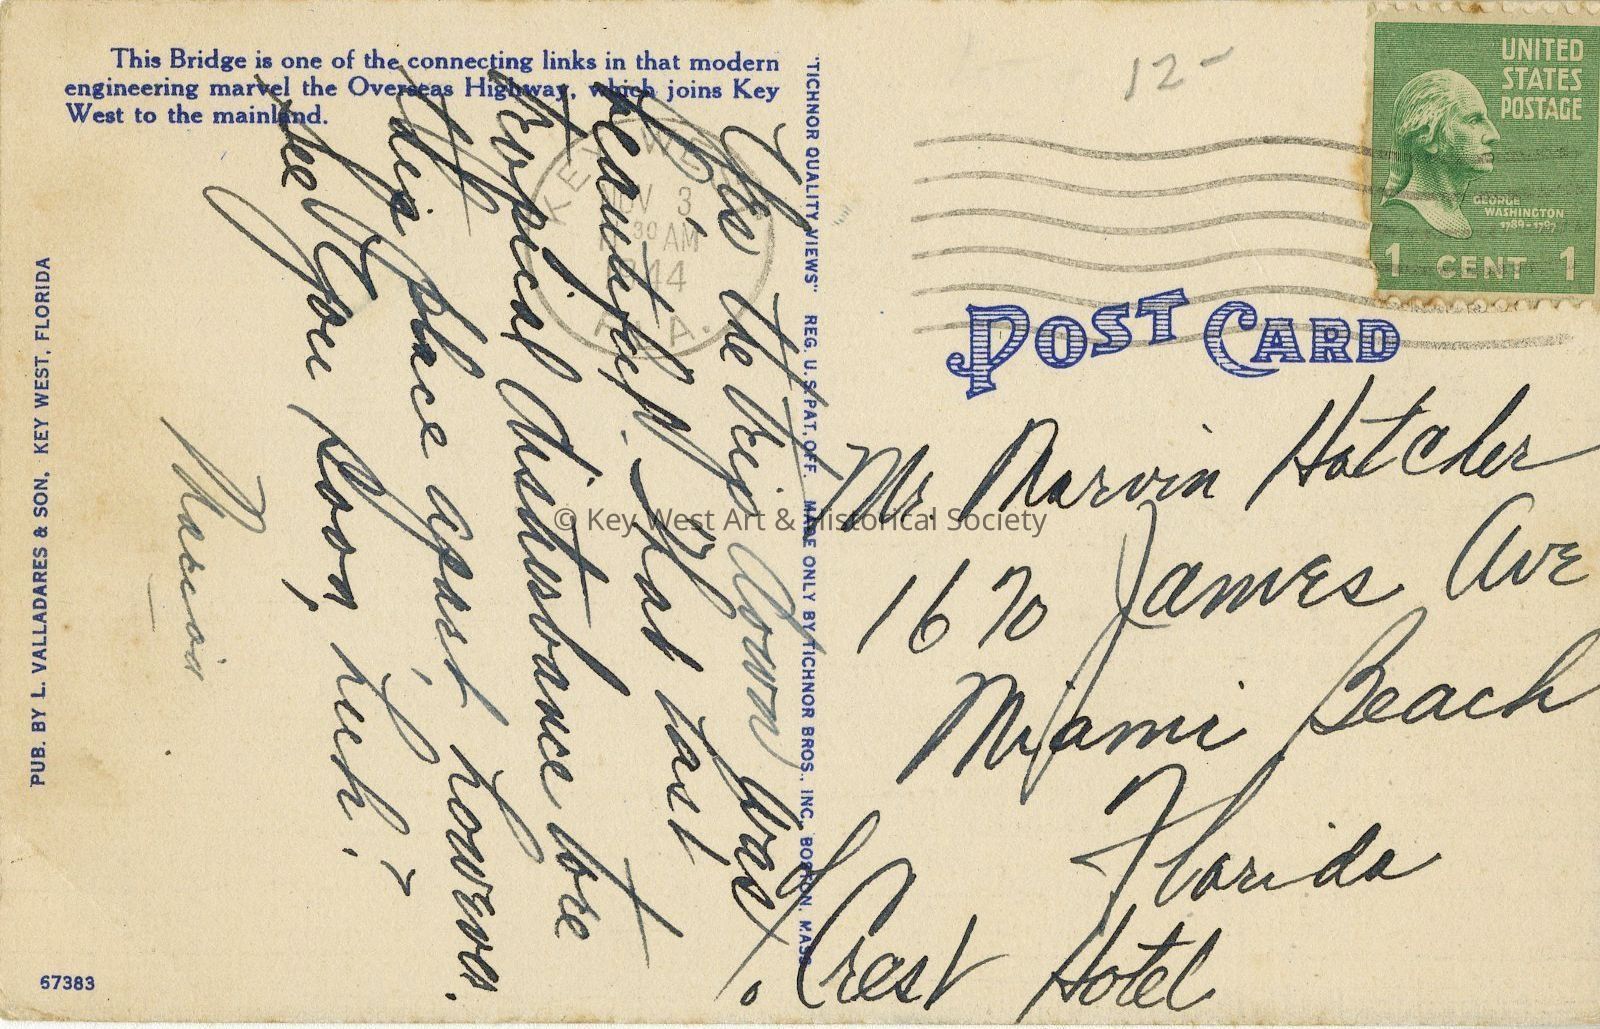 This Bridge is one of the connecting links in that modern
engineering marvel the Overseas Highway, which joins Key
West to the mainland.
12-
UNITED
STATES
POSTAGE
GEORGE
WASHINGTON
1789-1797
1 CENT 1
KEY WEST
NOV 3
30 AM
1944
FLA.
POST CARD
The trip down was
beautiful. Had last
tropical disturbance tore
this place apart, however.
See you soon, huh?
Marvin
"TICHNOR QUALITY VIEWS" REG. U. S. PAT. OFF. MADE ONLY BY TICHNOR BROS., INC., BOSTON, MASS.
Mr. Marvin Hatcher
1670 James Ave
Miami Beach
Florida
Crest Hotel
PUB. BY L. VALLADARES & SON, KEY WEST, FLORIDA
67383
© Key West Art & Historical Society